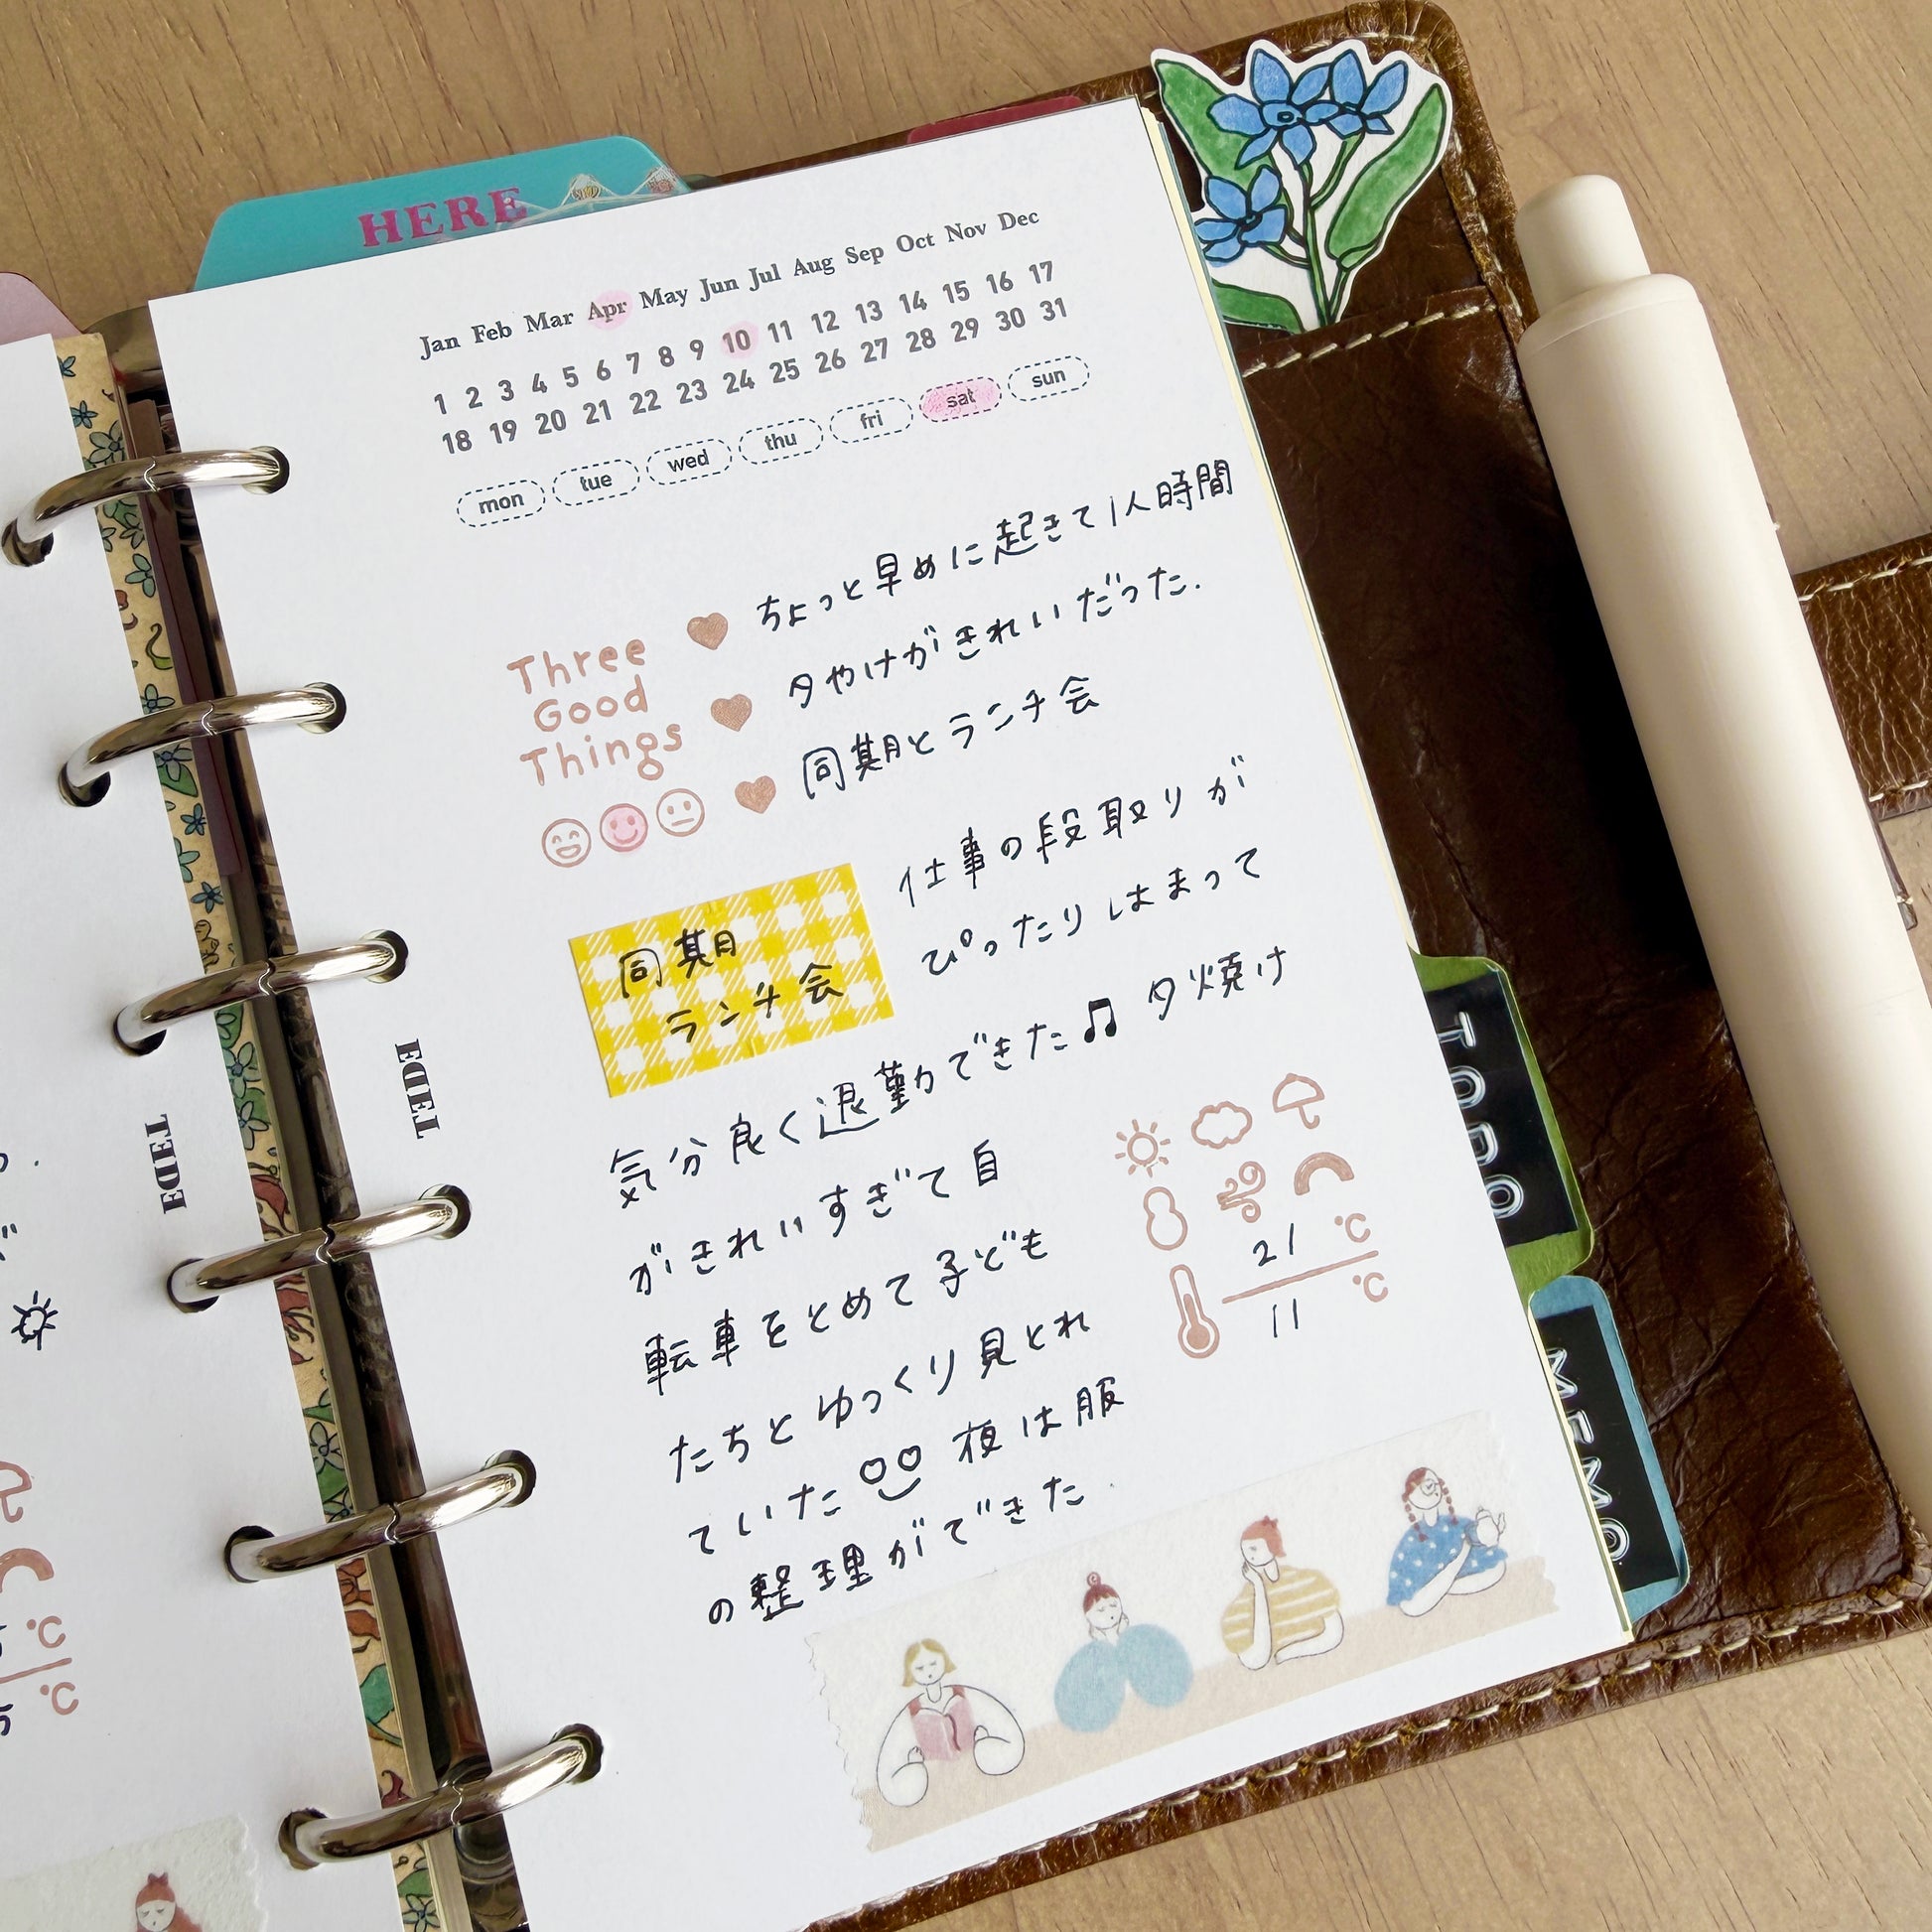 HERE
Jan Feb Mar Apr May Jun Jul Aug Sep Oct Nov Dec
1 2 3 4 5 6 7 8 9 10 11 12 13 14 15 16 17
18 19 20 21 22 23 24 25 26 27 28 29 30 31
mon tue wed thu fri sat sun
Three
Good
Things
ちょっと早めに起きて1人時間
夕やけがきれいだった.
同期とランチ会
同期
ランチ会
仕事の段取りが
ぴったりはまって
気分良く退勤できた♫ 夕焼け
がきれいすぎて自
転車をとめて子ども
たちとゆっくり見とれ
ていた 夜は服
の整理ができた.
21 ℃
11 ℃
EDEL
EDEL
TODO
MEMO
℃
℃